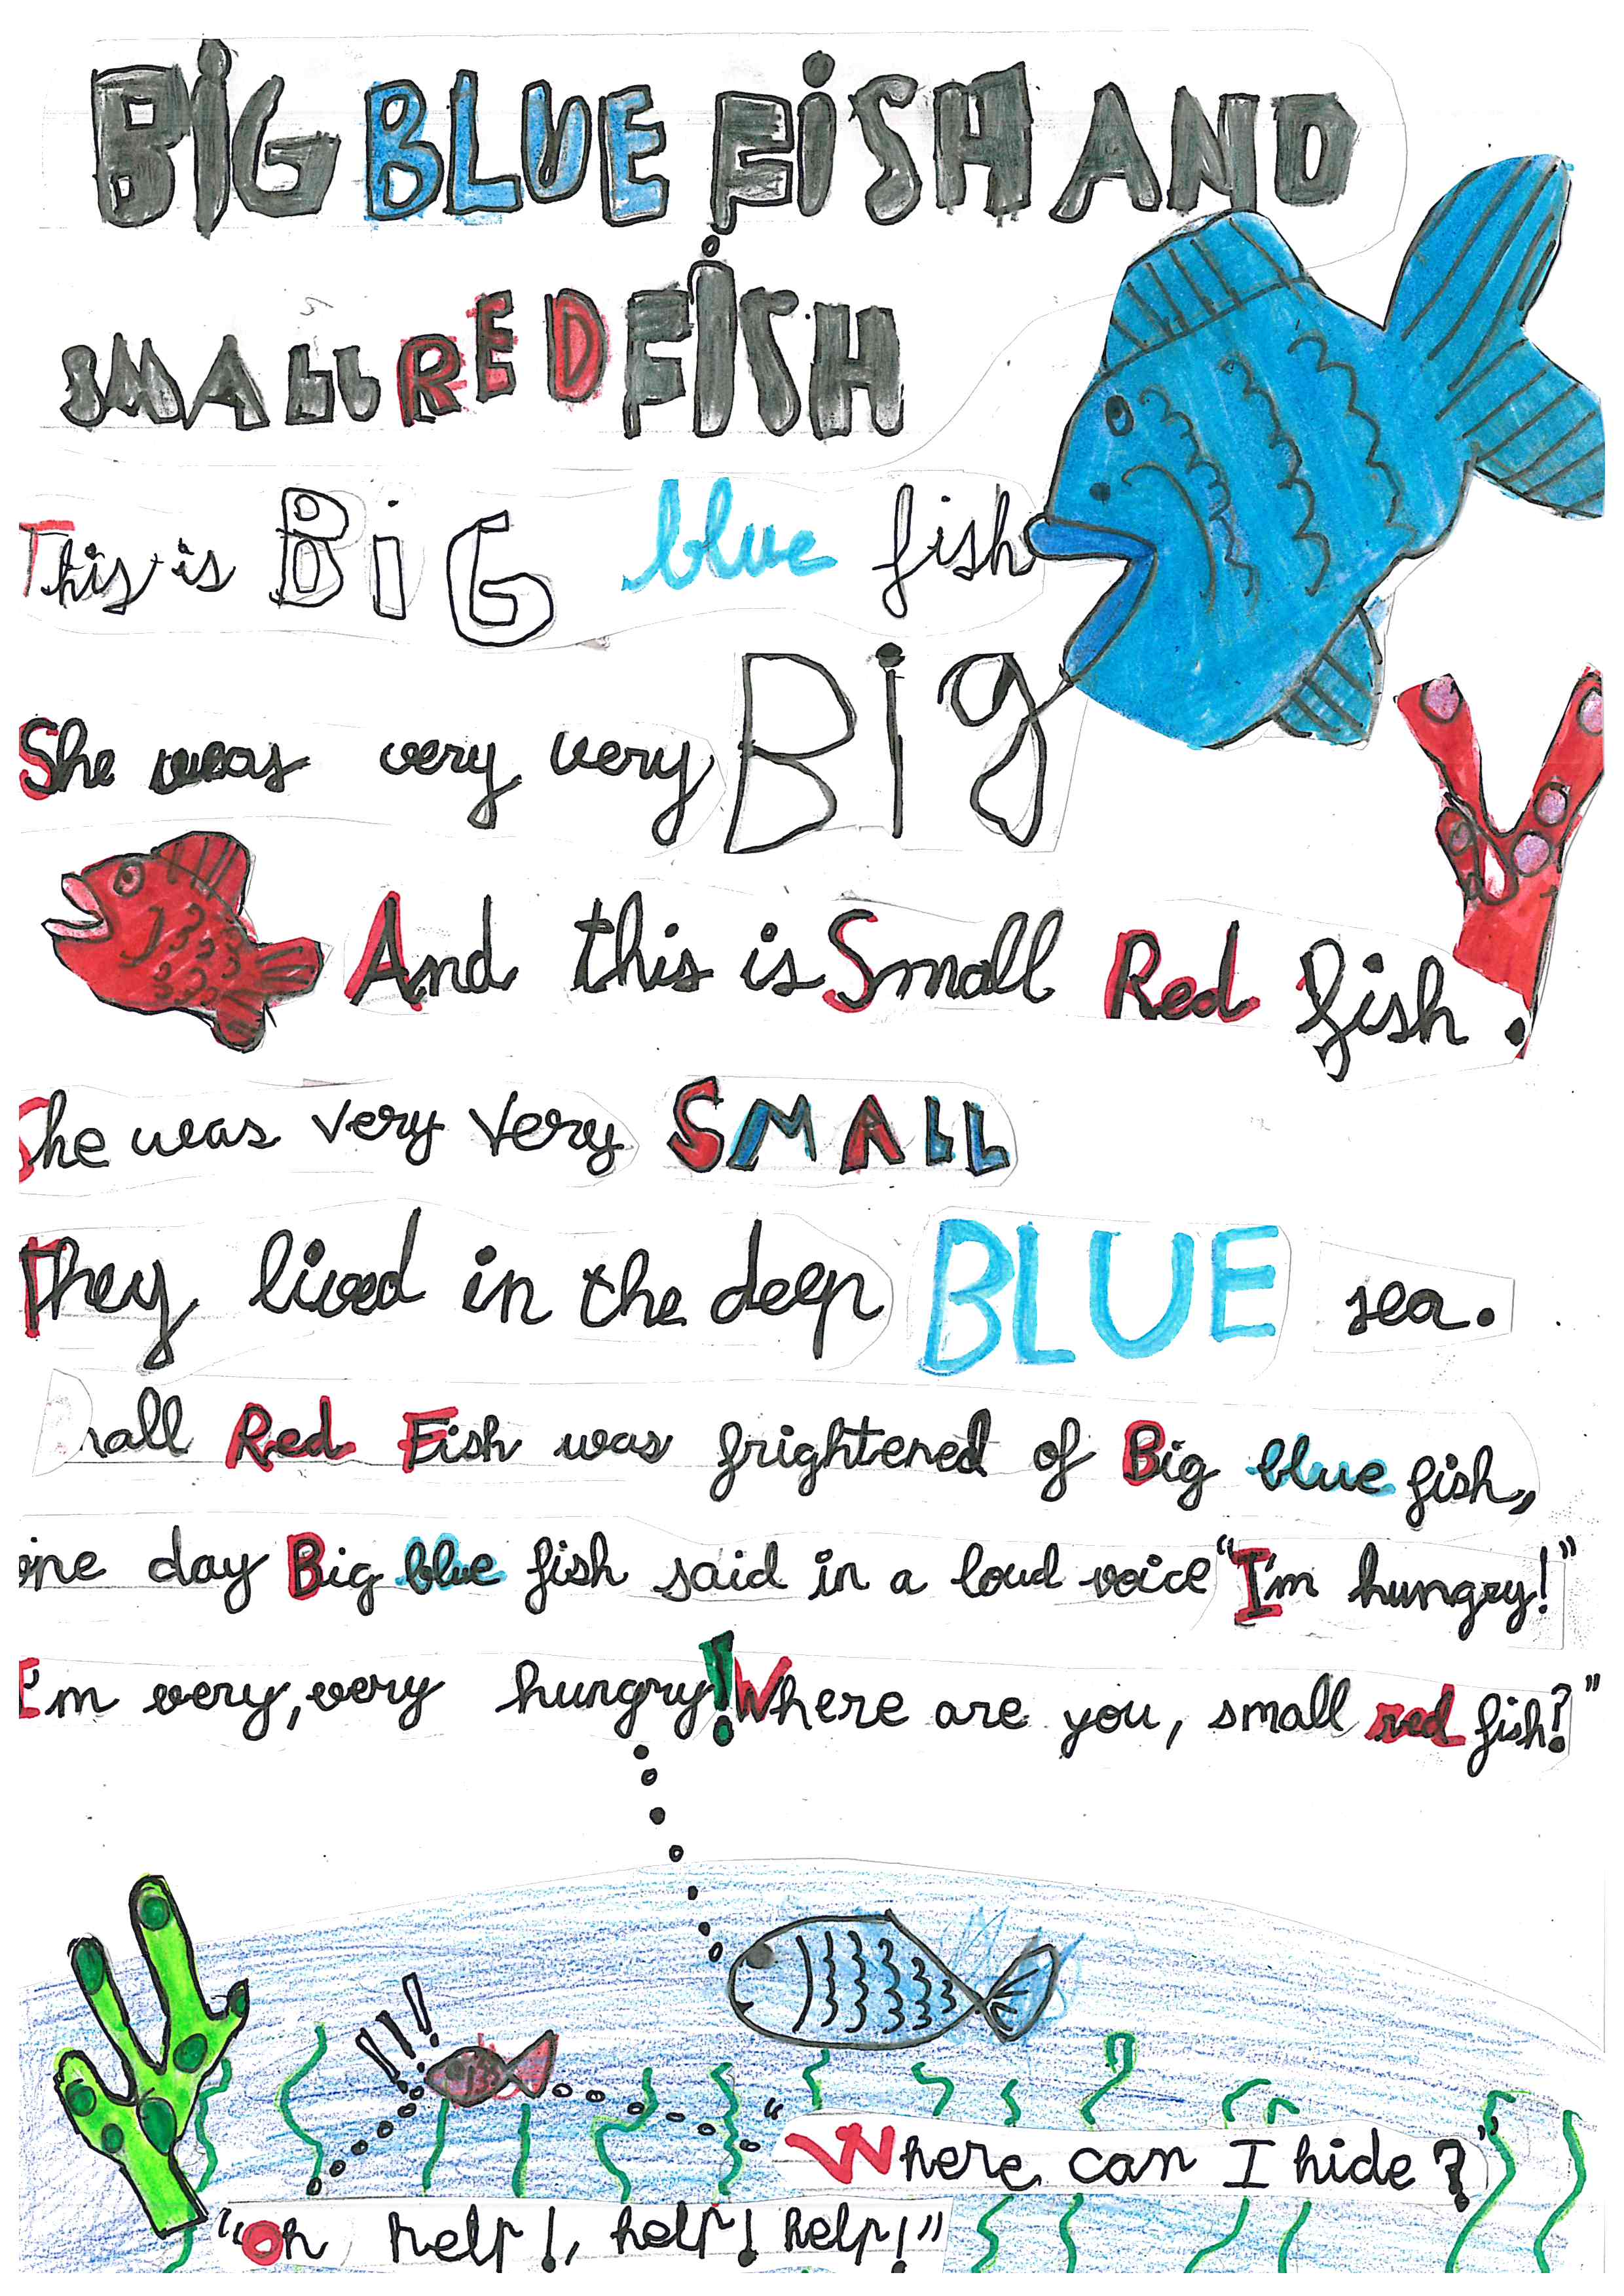 BiG BLUE FiSH AND
SMALL RED FiSH
This is BiG blue fish
She was very very Big
And this is Small Red fish.
She was very very SMALL
They lived in the deep BLUE sea.
all Red Fish was frightened of Big blue fish,
one day Big blue fish said in a loud voice "I'm hungry!"
I'm very, very hungry! Where are you, small red fish?"
!!!
"Where can I hide?"
"Oh help!, help! help!"